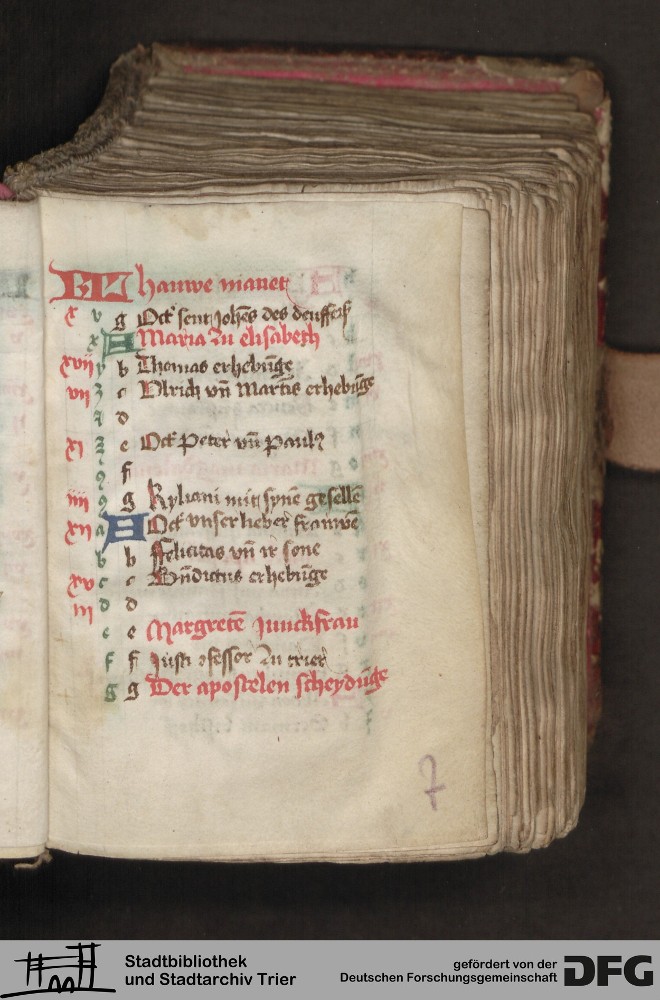 KL hauwe manet
x v g Oct sent Johẽs des deuffers
x A Maria zu elisabeth
xvij y b Thomas erhebũge
vij z c Vlrich vñ Martĩs erhebũge
d
xj e Oct Peter vñ Pauls
f
iiij g Kyliani mit synẽ gesellẽ
xij a A Oct vnser lieber frauwẽ
b b Felicitas vñ ir sone
xv c c Bñdictus erhebũge
iij d d
e e Margretẽ Junckfrau
f f Justi ꝯfessor zu trier
g g Der apostelen scheydũge
7
Stadtbibliothek
und Stadtarchiv Trier
gefördert von der
Deutschen Forschungsgemeinschaft
DFG